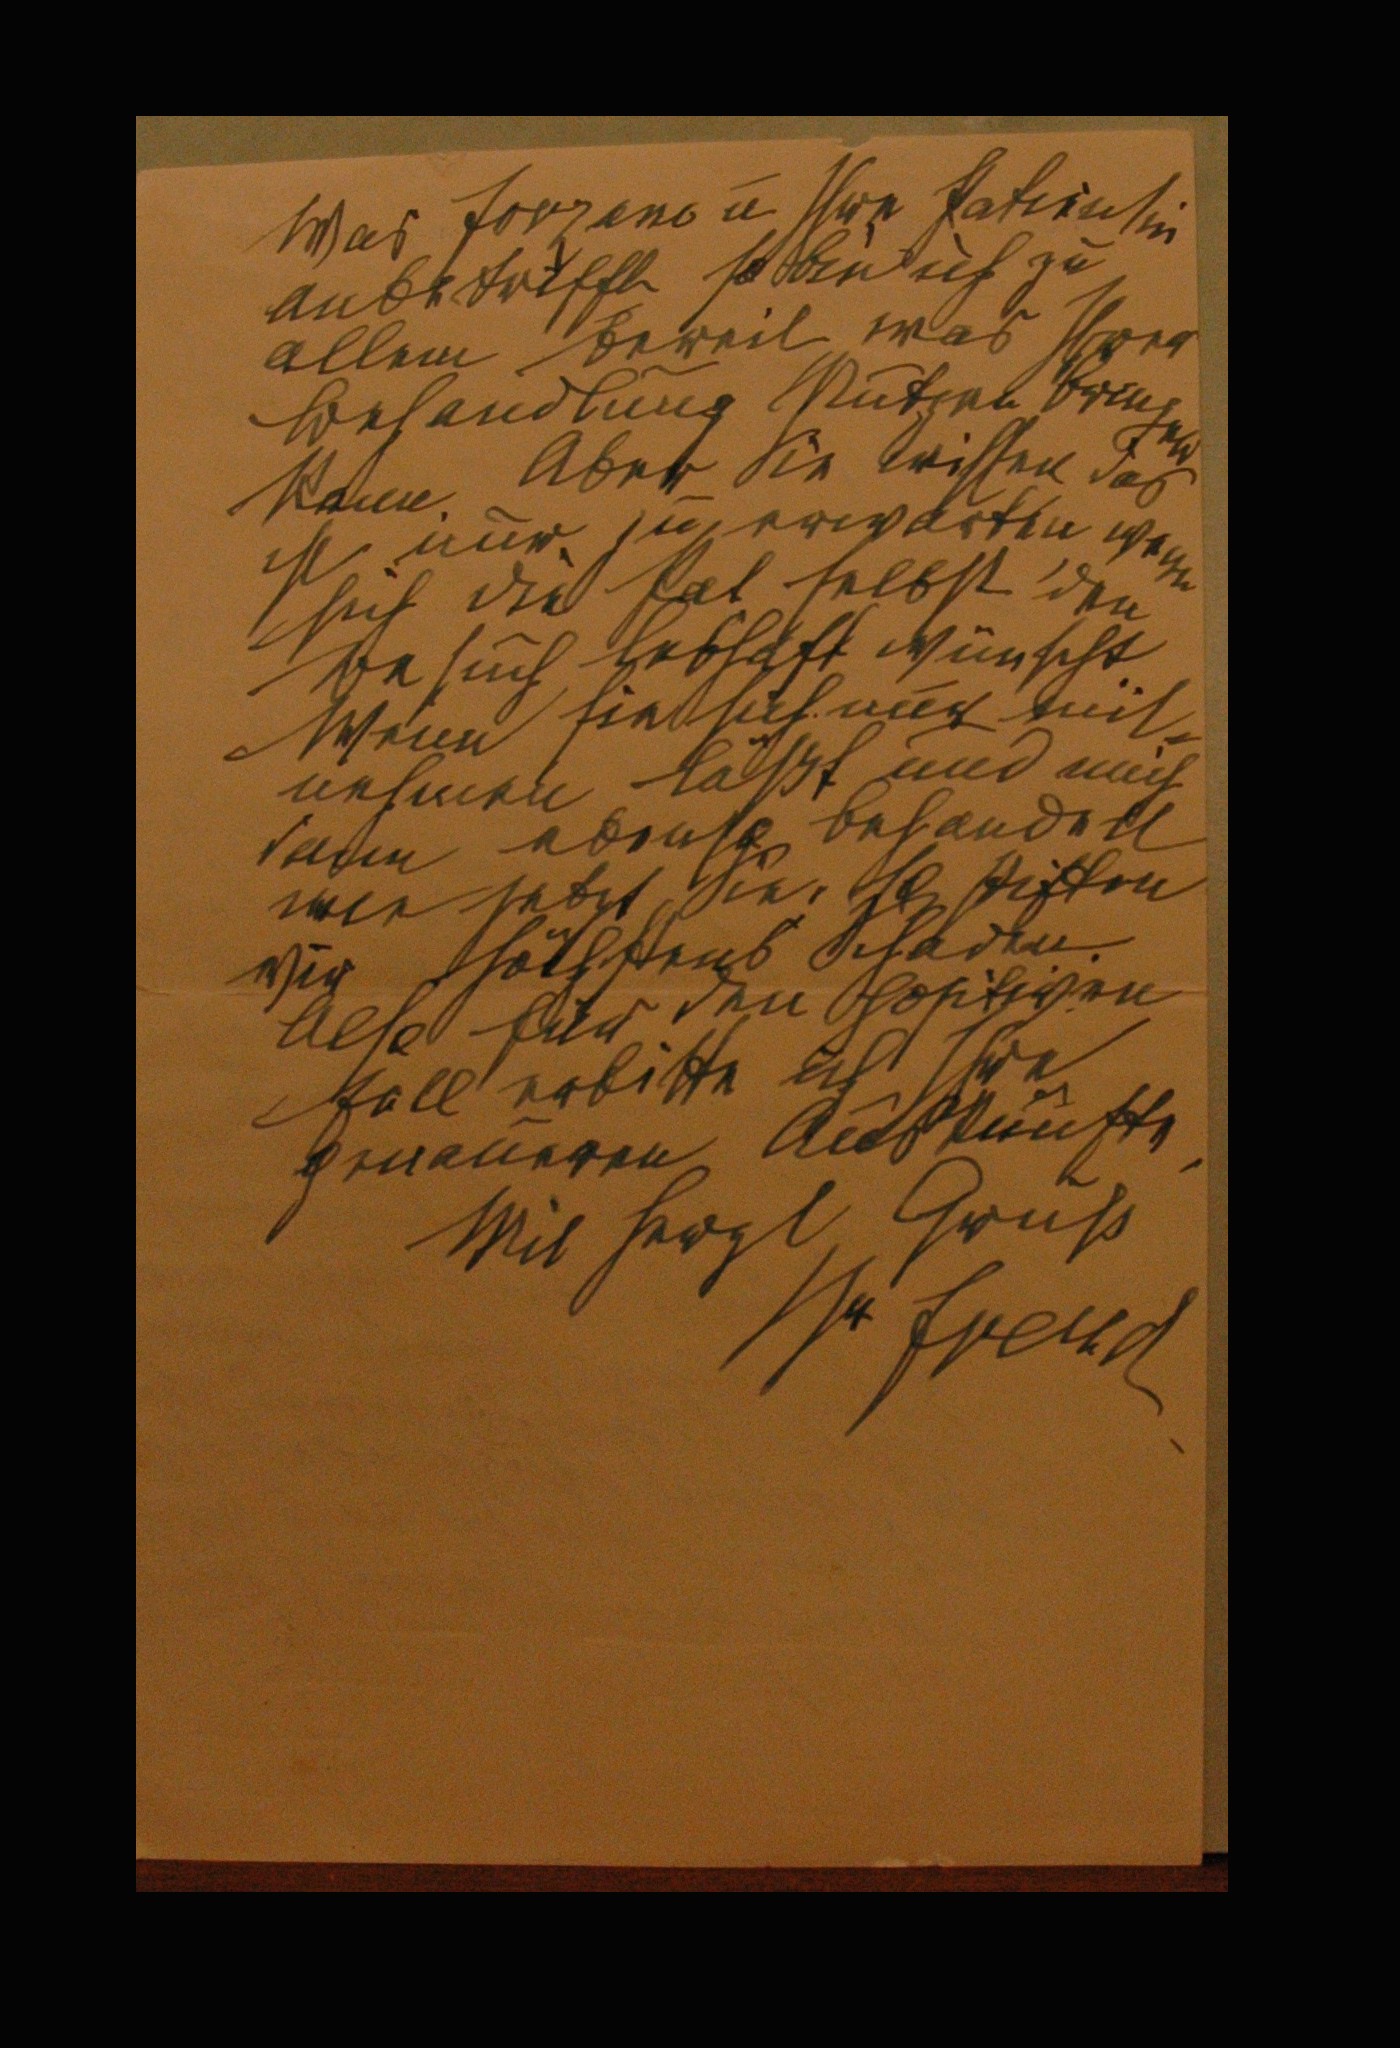 Was Forzano u Ihre Patientin
anbetrifft so bin ich zu
allem bereit was Ihrer
Behandlung Nutzen bringen
kann. Aber Sie wissen das
ist nur zu erwarten wenn
sich die Pat selbst den
Besuch lebhaft wünscht
Wenn sie sich nur mit-
nehmen läßt und mich
dann ebenso behandelt
wie jetzt Sie, so stiften
wir höchstens Schaden.
Also für den positiven
Fall erbitte ich Ihre
genaueren Auskünfte,
Mit herzl Gruß
Ihr Freud